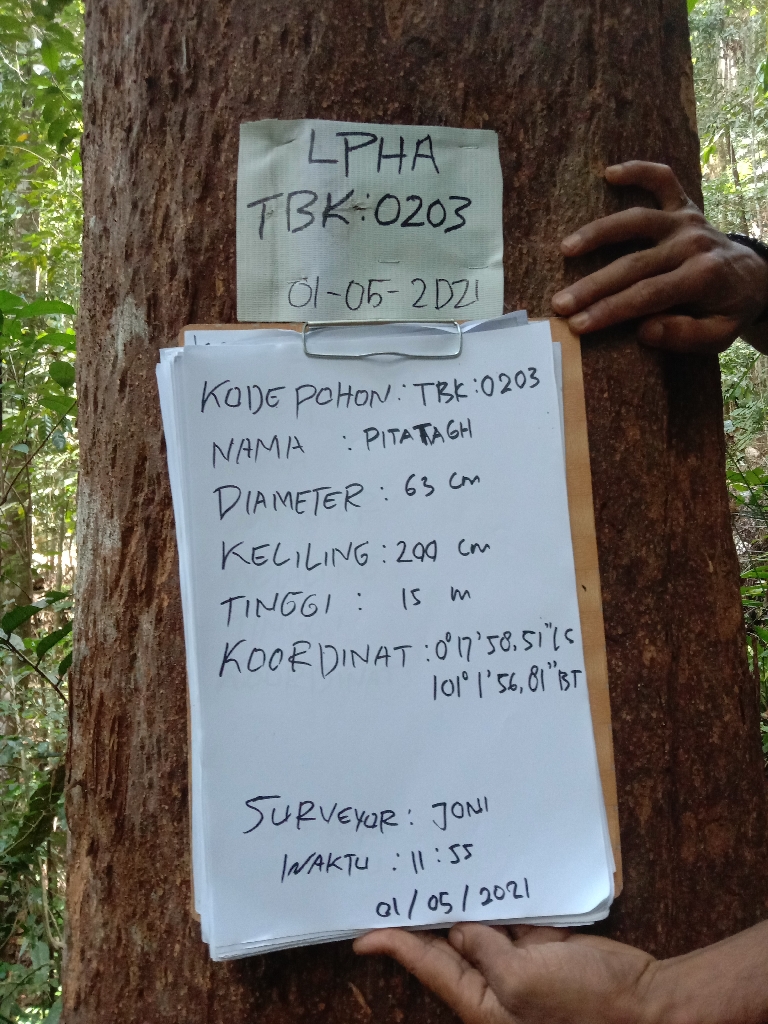 LPHA
TBK:0203
01-05-2021
KODE POHON: TBK:0203
NAMA : PITATAGH
DIAMETER : 63 cm
KELILING : 200 cm
TINGGI : 15 m
KOORDINAT : 0° 17' 58,51" LS
101° 1' 56,81" BT
SURVEYOR : JONI
WAKTU : 11:55
01/05/2021